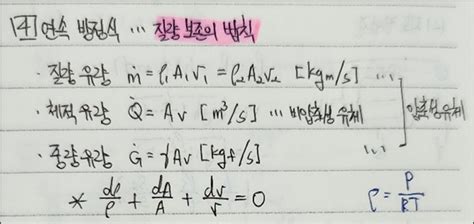 [4] 연속 방정식 … 질량 보존의 법칙
· 질량 유량 ṁ = ρ₁A₁v₁ = ρ₂A₂v₂ [kgm/s] …
· 체적 유량 Q̇ = Av [m³/s] … 비압축성 유체 압축성 유체
· 중량 유량 Ġ = γAv [kgf/s] …
* dρ/ρ + dA/A + dv/v = 0 ρ = P/RT